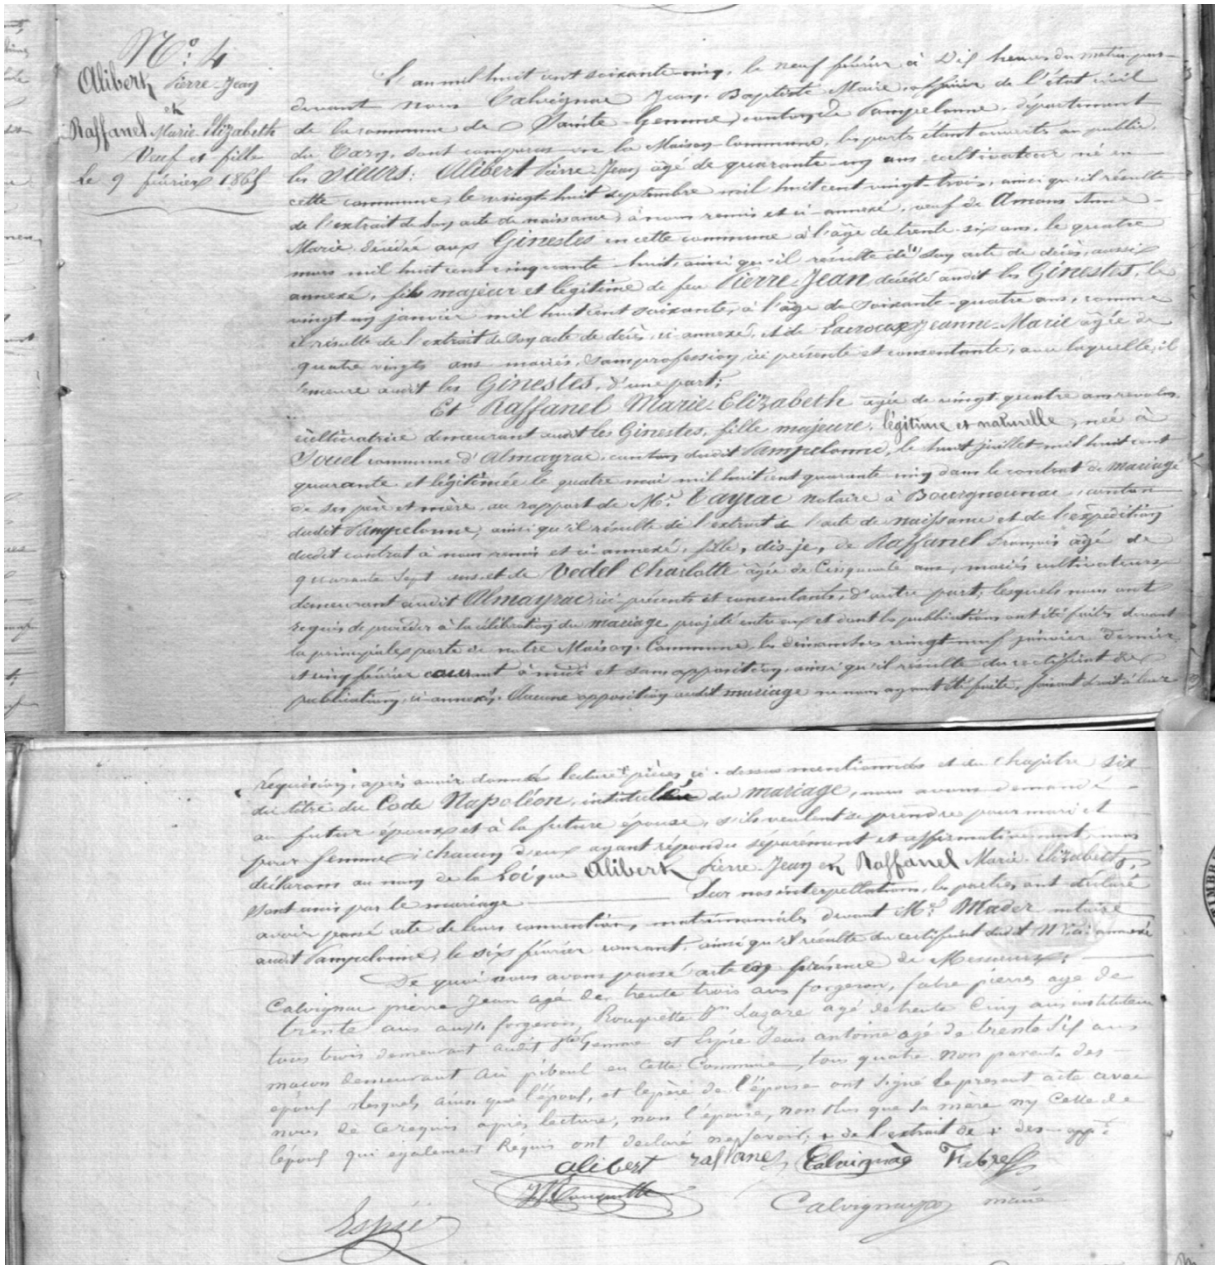 N.º 4
Alibert Pierre-Jean
et
Raffanel Marie-Elizabeth
Veuf et fille
Le 9 février 1865
L'an mil huit cent soixante-cinq, le neuf février à dix heures du matin, par-
devant nous Calvignac Jean-Baptiste Marie, officier de l'état civil
de la commune de Sainte-Gemme, canton de Pampelonne, département
du Tarn, sont comparus en la Maison-Commune, les portes étant ouvertes au public,
les sieurs: Alibert Pierre-Jean âgé de quarante-un ans, cultivateur né en
cette commune, le vingt-huit septembre mil huit cent vingt-trois, ainsi qu'il résulte
de l'extrait de son acte de naissance, à nous remis et ci-annexé, veuf de Amans Anne-
Marie décédée aux Ginestes en cette commune à l'âge de trente-six ans, le quatre
mars mil huit cent cinquante-huit, ainsi qu'il résulte de son acte de décès, aussi
annexé, fils majeur et légitime de feu Pierre-Jean décédé audit les Ginestes, le
vingt-un janvier mil huit cent soixante, à l'âge de soixante-quatre ans, comme
il résulte de l'extrait de son acte de décès, ci-annexé, et de Lacroux Jeanne-Marie âgée de
quatre vingts ans mariés, sans profession, ici présente et consentante, avec laquelle, il
demeure audit les Ginestes, d'une part;
Et Raffanel Marie-Elizabeth âgée de vingt-quatre ans révolus,
cultivatrice demeurant audit les Ginestes, fille majeure, légitime et naturelle, née à
Jouel commune d'Almayrac, canton dudit Pampelonne, le huit juillet mil huit cent
quarante et légitimée le quatre mai mil huit cent quarante-cinq dans le contrat de mariage
de ses père et mère, au rapport de Me. Vayrac notaire à Bourgnounac, canton
dudit Pampelonne, ainsi qu'il résulte de l'extrait de l'acte de naissance et de l'expédition
dudit contrat à nous remis et ci annexé, fille, dis-je, de Raffanel François âgé de
quarante sept ans et de Vedel Charlotte âgée de Cinquante ans, mariés cultivateurs
demeurant audit Almayrac, ici présents et consentants, d'autre part, lesquels nous ont
requis de procéder à la célébration du mariage projeté entre eux et dont les publications ont été faites devant
la principale porte de notre Maison-Commune, les dimanches vingt-neuf janvier dernier
et cinq février courant à midi et sans opposition, ainsi qu'il résulte du certificat de
publication, ci-annexé. Aucune opposition audit mariage ne nous ayant été faite, faisant droit à leur
réquisition, après avoir donné lecture + pièces ci-dessus mentionnées et du chapitre six
du titre du Code Napoléon, intitulé du mariage, nous avons demandé
au futur époux et à la future épouse, s'ils veulent se prendre pour mari et
pour femme; chacun d'eux ayant répondu séparément et affirmativement, nous
déclarons au nom de la Loi que Alibert Pierre-Jean et Raffanel Marie-Elizabeth,
sont unis par le mariage. Sur nos interpellations, les parties ont déclaré
avoir passé acte de leurs conventions matrimoniales devant Me. Mader notaire
audit Pampelonne, le six février courant, ainsi qu'il résulte du certificat dudit Me. ci-annexé
De quoi nous avons passé acte en présence de Messieurs:
Calvignac pierre Jean agé de trente trois ans forgeron, fabre pierre agé de
trente ans aussi forgeron, Rouquette Lazare agé de trente cinq ans instituteur
tous trois demeurant audit Ste Gemme et Espié Jean antoine agé de trente six ans
maçon demeurant au piboul en cette Commune, tous quatre non parents des
époux desquels ainsi que l'époux, et le père de l'épouse ont signé le present acte avec
nous de ce requis après lecture, non l'épouse, non plus que sa mère ny Celle de
l'époux qui également Requis ont declaré ne savoir; + de l'extrait de + des appé
alibert raffanel Calvignac Fabre
Rouquette
Calvignac maire
Espié